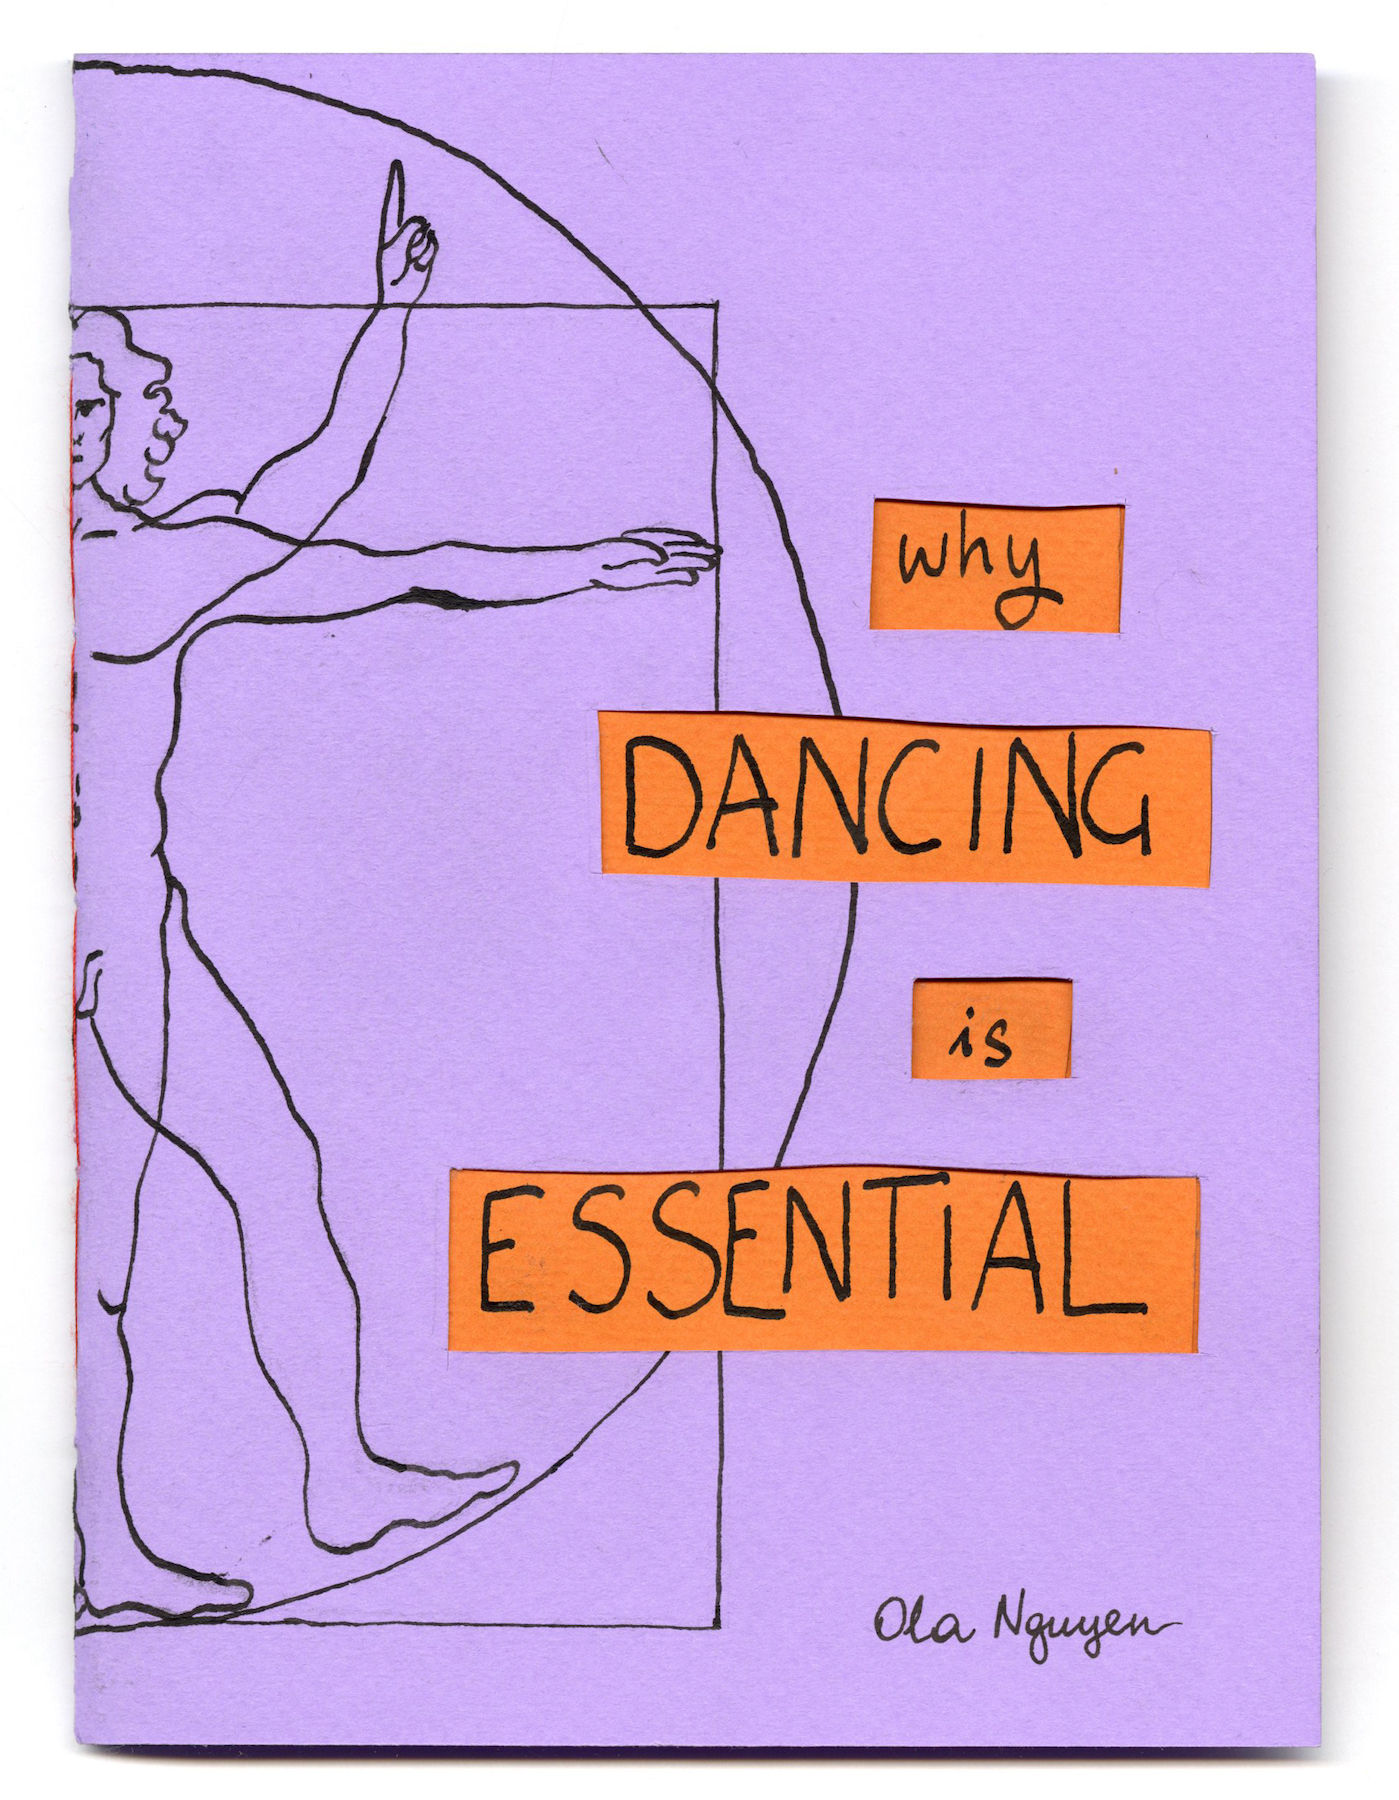 why
DANCING
is
ESSENTiAL
Ola Nguyen